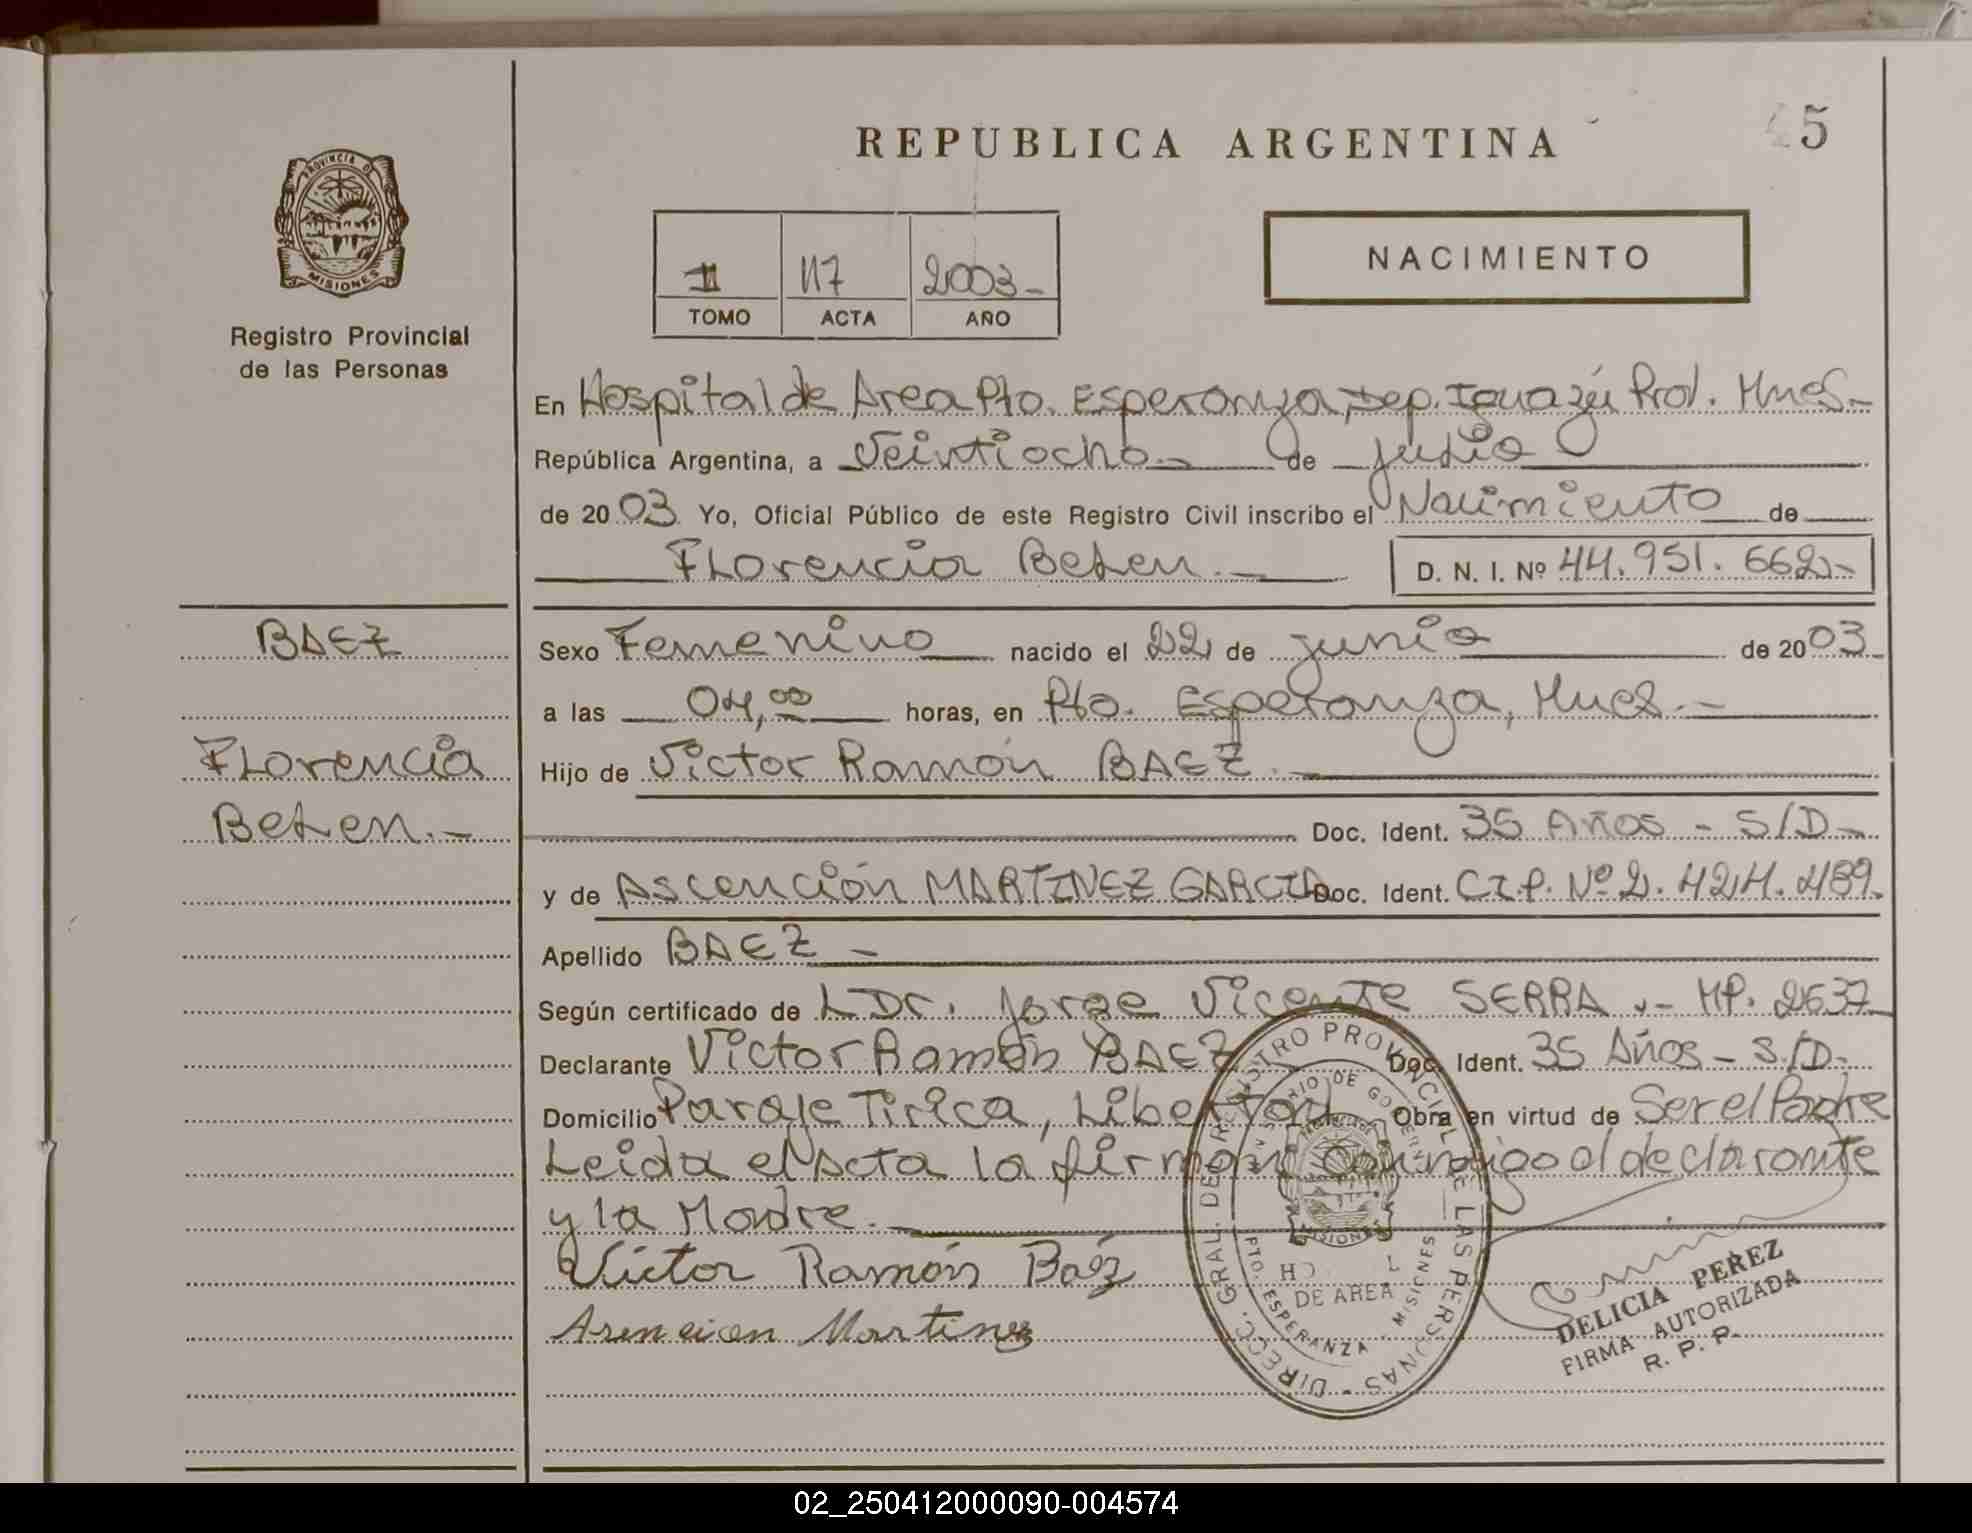 REPUBLICA ARGENTINA
45
PROVINCIA DE
MISIONES
Registro Provincial
de las Personas
II 117 2003-
TOMO ACTA AÑO
NACIMIENTO
En Hospital de Area Pto. Esperanza, Dep. Iguazú Prov. Mnes.-
República Argentina, a Veintiocho.- de julio
de 2003 Yo, Oficial Público de este Registro Civil inscribo el Nacimiento de
Florencia Belen.- D. N. I. Nº 44.951.662.-
BAEZ
Florencia
Belen.-
Sexo Femenino nacido el 22 de junio de 2003
a las 04,00 horas, en Pto. Esperanza, Mnes.-
Hijo de Victor Ramón BAEZ.-
Doc. Ident. 35 Años - S/D-
y de Ascención MARTINEZ GARCIA Doc. Ident. C.I.P. Nº 2.424.489.
Apellido BAEZ -
Según certificado de L Dr. Jorge Vicente SERRA.- MP. 2637
Declarante Victor Ramón BAEZ Doc. Ident. 35 Años - S/D-
Domicilio Paraje Tirica, Libertad Obra en virtud de Ser el Padre
Leida el Acta la firman conmigo el declarante
y la Madre.-
Victor Ramón Baéz
Martinez
DIRECC. GRAL. DE REGISTRO PROVINCIAL DE LAS PERSONAS -
MINISTERIO DE GOBIERNO
MISIONES
DE AREA
PTO. ESPERANZA - MISIONES
DELICIA PEREZ
FIRMA AUTORIZADA
R. P. P.
02_250412000090-004574